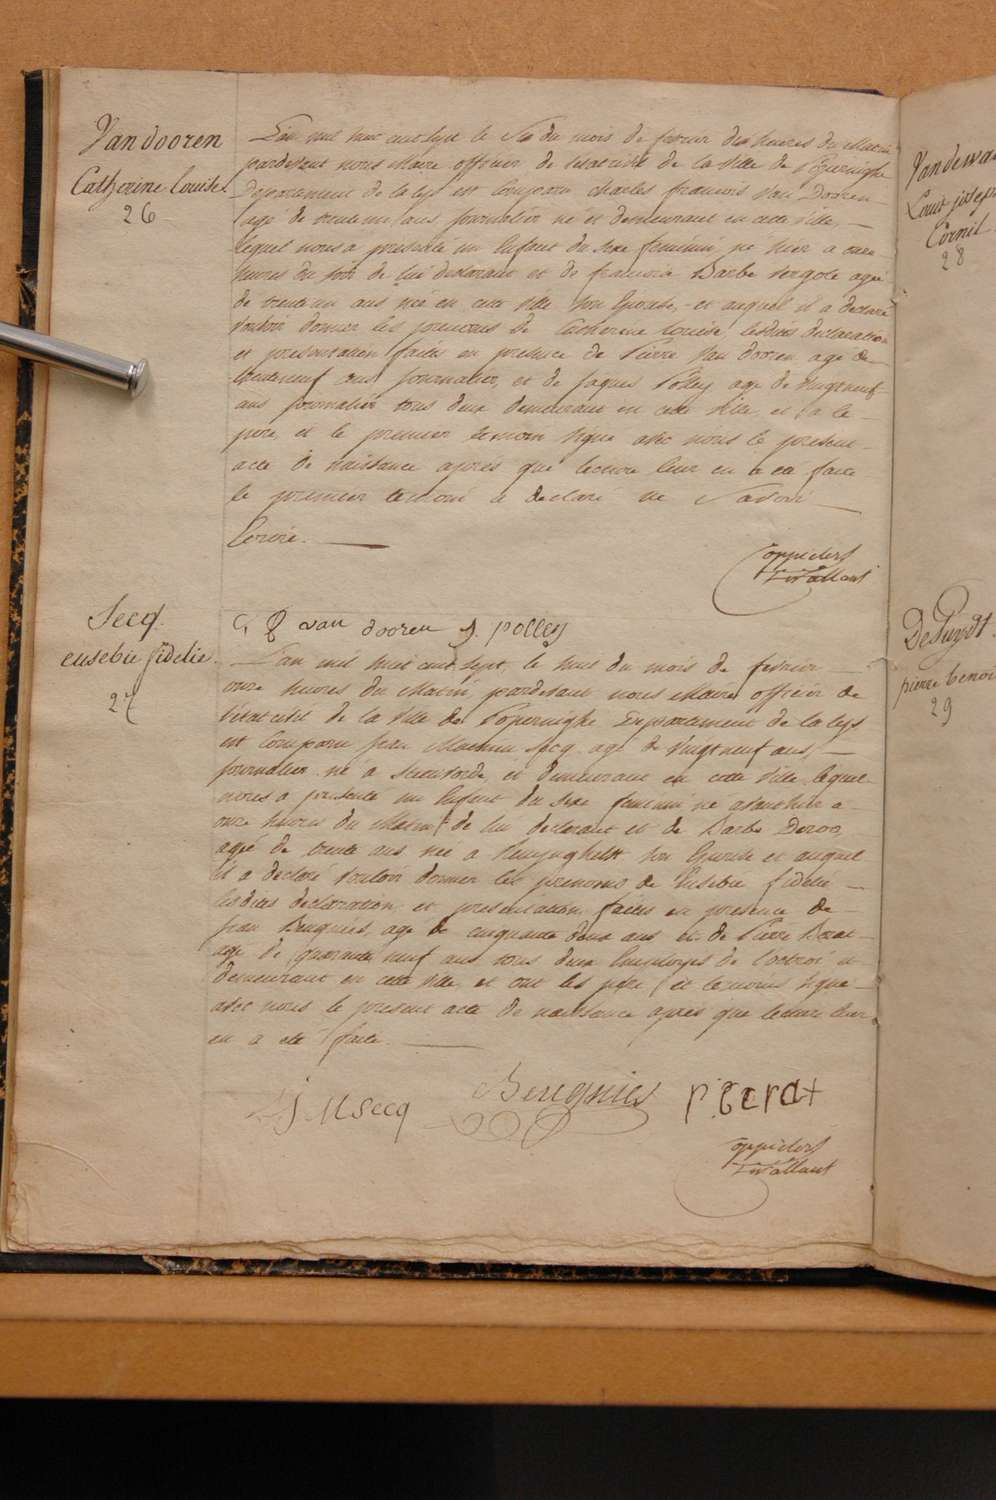 Van dooren
Catherine Louise
26
L'an mil huit cent sept le Six du mois de fevrier dix heures du Matin
pardevant nous Maire officier de l'etat civil de la Ville de Poperinghe
Departement de la Lys est Comparu charles francois Van Dooren
agé de trente un ans journalier né et demeurant en cette ville,
lequel nous a presenté un Enfant du Sexe feminin né hier a onze
heures du soir de lui declarant et de francoise Barbe Vergote agée
de trente un ans née en cette ville son Epouse, et auquel il a declaré
vouloir donner les prenoms de Catherine Louise lesdites declaration
et presentation faites en presence de Pierre Van dooren agé de
trenteneuf ans journalier, et de Jaques Polley agé de vingtneuf
ans journalier tous deux demeurant en cette ville, et a le
pere, et le premier temoin signé avec nous le present
acte de naissance après que lecture leur en a été faite
le premier temoin a declaré ne Savoir
Ecrire.
Coppieters
Stevallant
van dooren J. polley
Secq.
eusebie fidelie
27
L'an mil huit cent sept, le huit du mois de fevrier
onze heures du Matin, pardevant nous Maire officier de
l'etat civil de la ville de Poperinghe Departement de la Lys
est Comparu Jean Mathieu Secq agé de Vingtneuf ans,
journalier né a Steenvorde, et demeurant en cette ville, lequel
nous a presenté un Enfant du sexe feminin né avanthier a
onze heures du Matin de lui declarant et de Barbe Deroo
agée de trente ans née a son Epouse et auquel
il a declaré vouloir donner les prenoms de Eusebie fidelie
lesdites declaration et presentation faites en presence de
Jean Beugnies, agé de cinquante deux ans et de Pierre Berat
agé de quarante neuf ans tous deux Employés de l'octroi et
demeurant en cette ville, et ont les pere et temoins signé
avec nous le present acte de naissance après que lecture leur
en a été faite.
J M Secq
Beugnies
P. Berat
Coppieters
Stevallant
Louis joseph
Cornil
28
De Puydt
pierre benoi
29